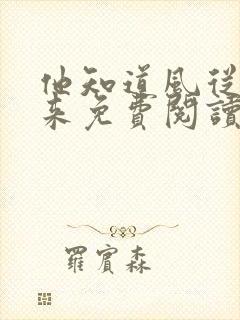 他知道風從
来免費閱讀
羅賓森